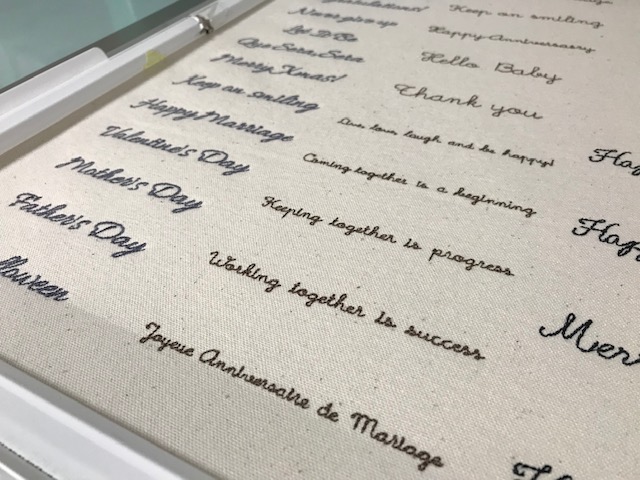 Never give up
Let It Be
Que Sera Sera
Merry Xmas!
Keep on smiling
Happy Marriage
Valentine's Day
Mother's Day
Father's Day
Keep on smiling
Happy Anniversary
Hello Baby
Thank you
Live love laugh and be happy!
Coming together is a beginning
Keeping together is progress
Working together is success
Joyeux Anniversaire de Mariage